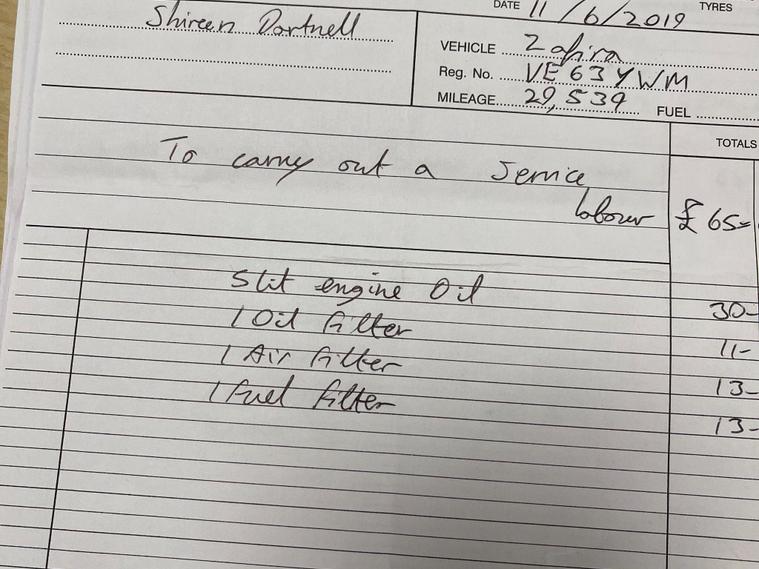 DATE 11/6/2019 TYRES
Shireen Dartnell
VEHICLE Zafira
Reg. No. VE63YWM
MILEAGE 29,539 FUEL
TOTALS
To carry out a Service
labour £65-
5lit engine Oil 30-
1 Oil filter 11-
1 Air filter 13-
1 fuel filter 13-